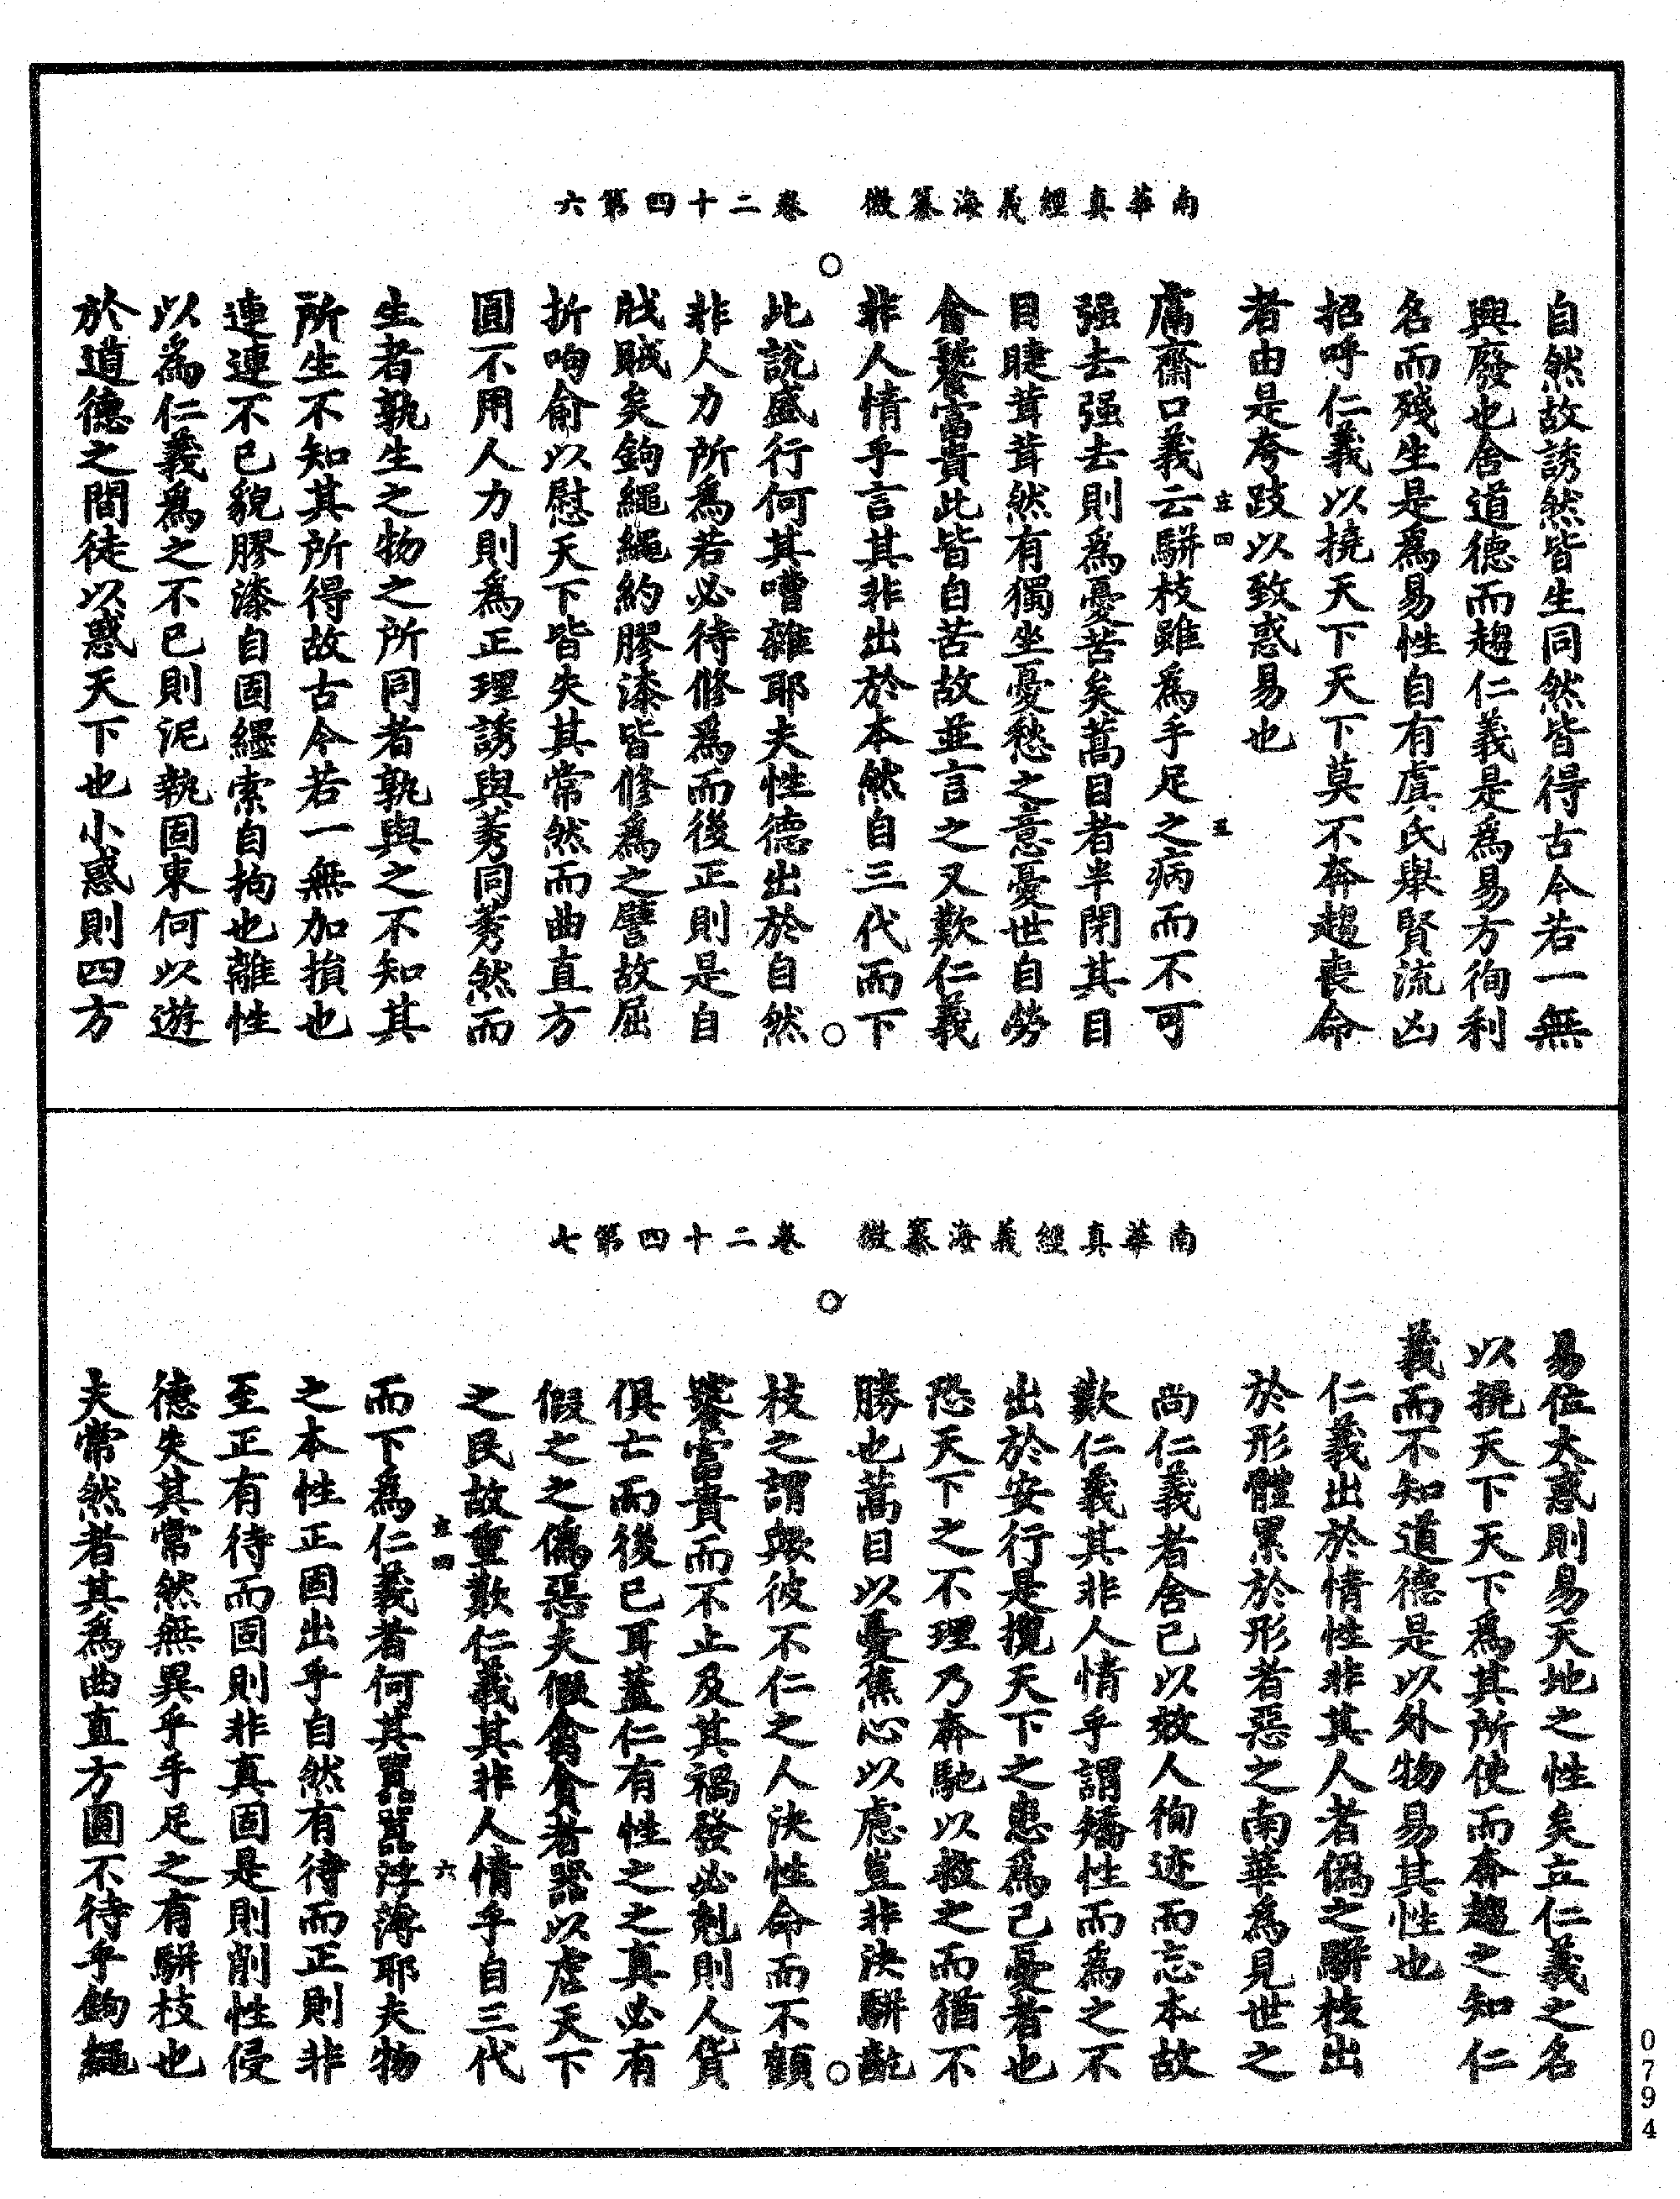 南華真經義海纂微　卷二十四第六
自然故誘然皆生同然皆得古今若一無
興廢也舍道德而趨仁義是為易方徇利
名而殘生是為易性自有虞氏舉賢流凶
招呼仁義以撓天下天下莫不奔趨喪命
者由是夸跂以致惑易也
立四
五
鬳齋口義云駢枝雖為手足之病而不可
强去强去則為憂苦矣蒿目者半閉其目
目睫茸茸然有獨坐憂愁之意憂世自勞
貪饕富貴此皆自苦故並言之又歎仁義
非人情乎言其非出於本然自三代而下
此說盛行何其嘈雜耶夫性德出於自然
非人力所為若必待修為而後正則是自
戕賊矣鉤繩繩約膠漆皆修為之譬故屈
折呴俞以慰天下皆失其常然而曲直方
圓不用人力則為正理誘與莠同莠然而
生者孰生之物之所同者孰與之不知其
所生不知其所得故古今若一無加損也
連連不已貌膠漆自固纆索自拘也離性
以為仁義為之不已則泥執固束何以遊
於道德之間徒以惑天下也小惑則四方
南華真經義海纂微　卷二十四第七
易位大惑則易天地之性矣立仁義之名
以撓天下天下為其所使而奔趨之知仁
義而不知道德是以外物易其性也
仁義出於情性非其人者偽之駢枝出
於形體累於形者惡之南華為見世之
尚仁義者舍已以效人徇迹而忘本故
歎仁義其非人情乎謂矯性而為之不
出於安行是攬天下之患為己憂者也
恐天下之不理乃奔馳以救之而猶不
勝也蒿目以憂焦心以慮豈非決駢齕
枝之謂與彼不仁之人決性命而不顧
饕富貴而不止及其禍發必剋則人貨
俱亡而後已耳蓋仁有性之之真必有
假之之偽惡夫假禽貪者器以虐天下
之民故重歎仁義其非人情乎自三代
立四
六
而下為仁義者何其囂囂浮薄耶夫物
之本性正固出乎自然有待而正則非
至正有待而固則非真固是則削性侵
德失其常然無異乎手足之有駢枝也
夫常然者其為曲直方圓不待乎鉤繩
0794